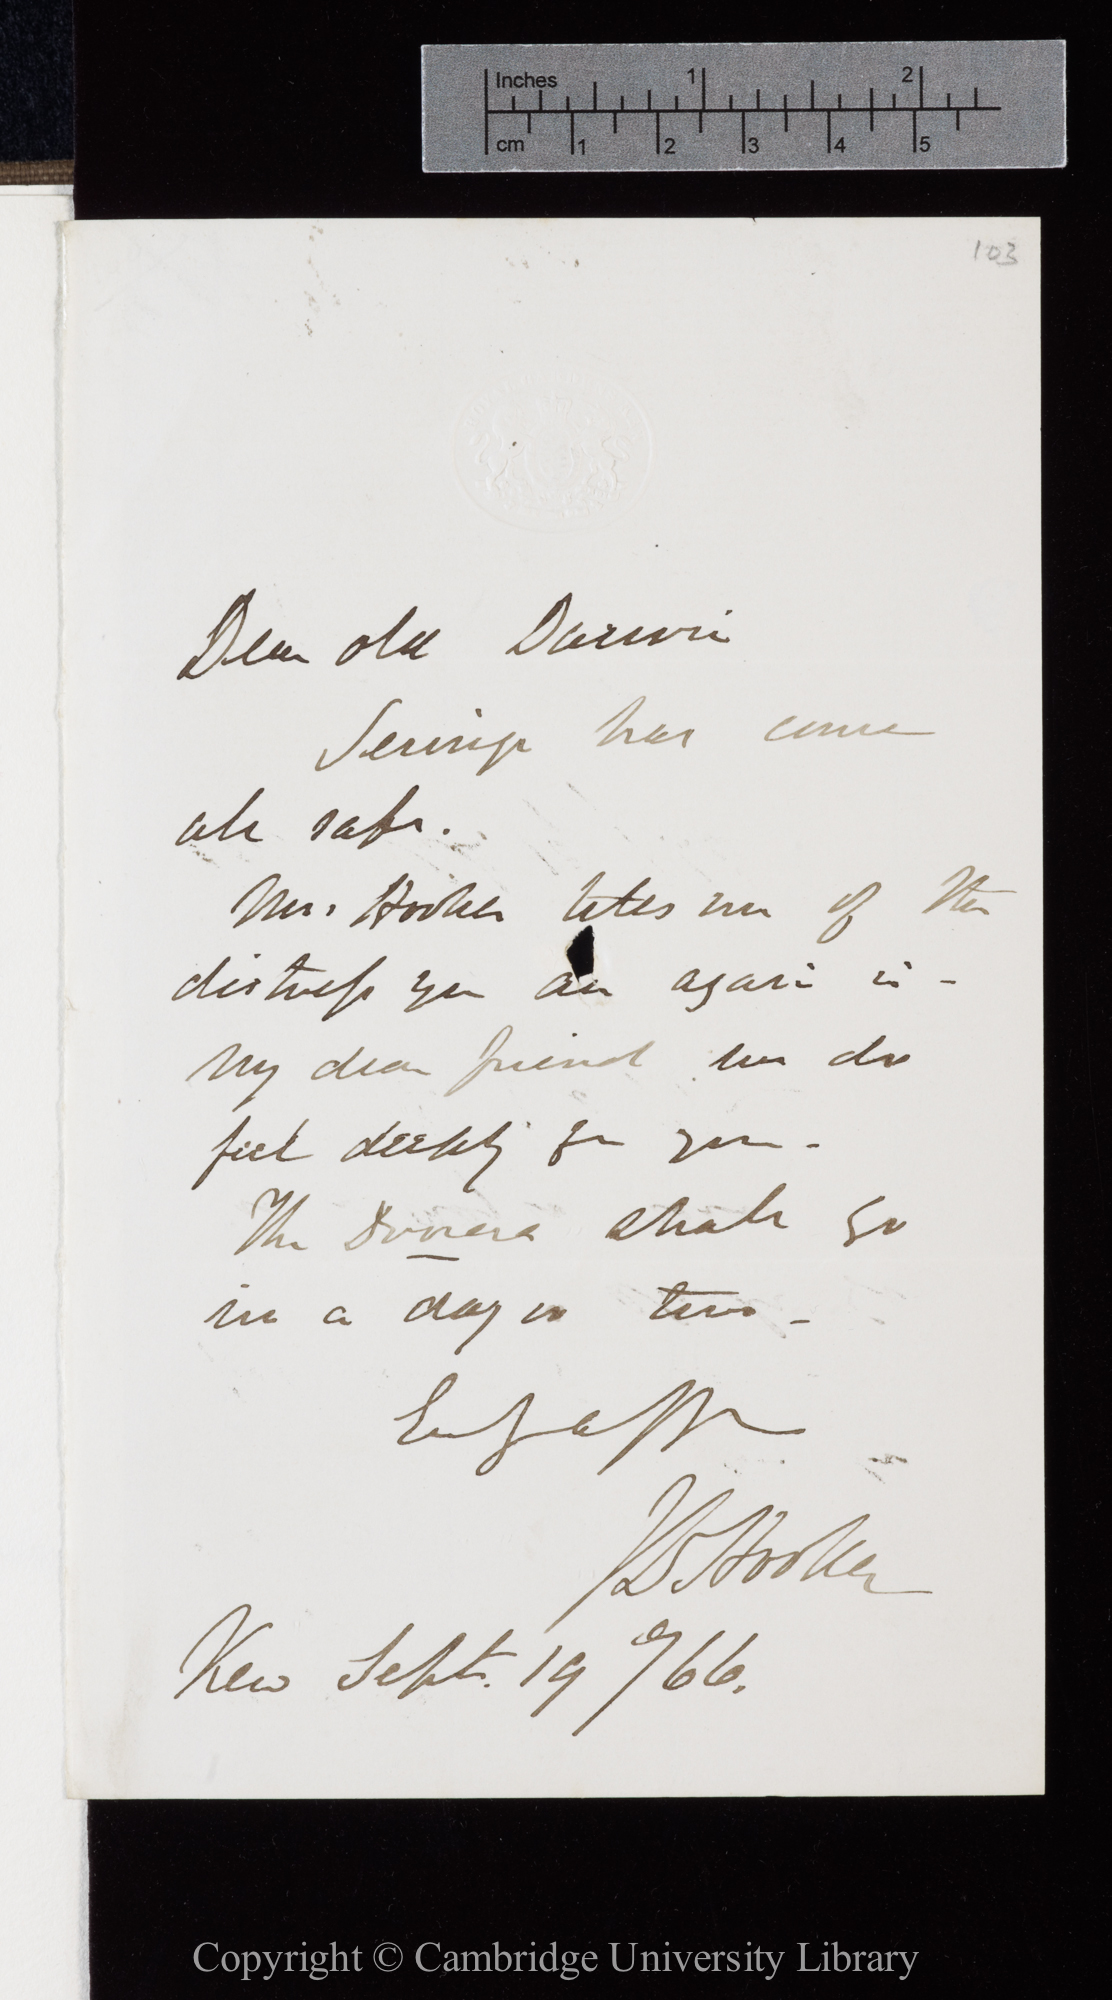 Inches 1 2
cm 1 2 3 4 5
103
Dear old Darwin
Seringe has come
all safe.
Mrs. Hooker tells me of the
distress you are again in —
My dear friend we do
feel deeply for you. —
The Drosera shall go
in a day or two —
Ev yr aff
J D Hooker
Kew Sept. 19/66.
Copyright © Cambridge University Library